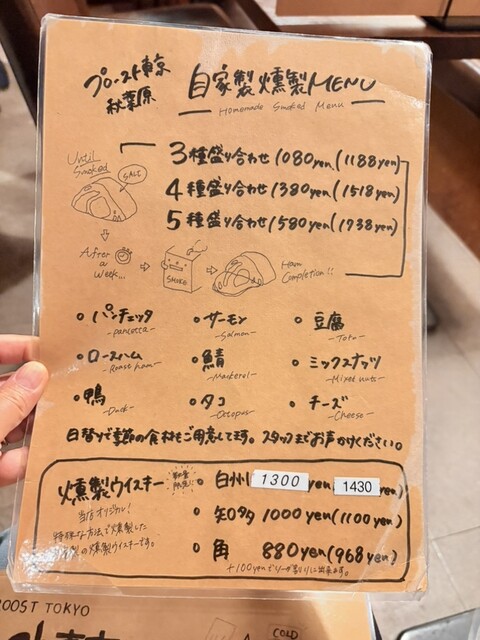 プロースト東京
秋葉原
自家製燻製MENU
Homemade Smoked Menu
Until Smoked
SALT
3種盛り合わせ 1080yen(1188yen)
4種盛り合わせ 1380yen(1518yen)
5種盛り合わせ 1580yen(1738yen)
After a week...
SMOKE
Ham Completion!!
・パンチェッタ ・サーモン ・豆腐
-pancetta- -Salmon- -Tofu-
・ローストハム ・鯖 ・ミックスナッツ
-Roast ham- -Mackerel- -Mixed nuts-
・鴨 ・タコ ・チーズ
-Duck- -Octopus- -Cheese-
日替りで季節の食材もご用意してます。スタッフまでお声かけください。
燻製ウイスキー 数量限定! ・白州 1300 yen 1430 yen)
当店オリジナル!
特殊な方法で燻製した
の燻製ウイスキーです。
・知多 1000yen(1100yen)
・角 880yen(968yen)
+100yenでソーダ割りに出来ます。
ROOST TOKYO
COLD